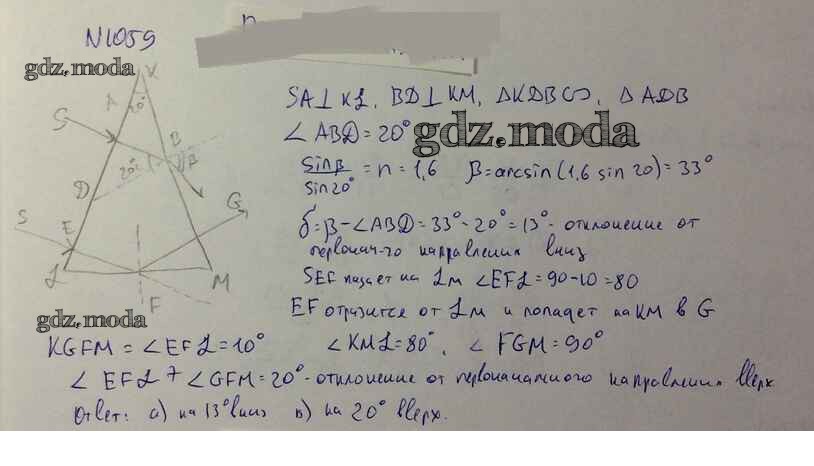 N1059
gdz.moda
K
A
20°
S
B
20°
β
D
G
S
E
L
M
F
SA⊥KL, BD⊥KM, ΔKDB∽, ΔADB
∠ABD=20°
gdz.moda
sinβ/sin20° = n = 1,6 β=arcsin(1,6 sin 20)=33°
б=β-∠ABD=33°-20°=13°- отклонение от
первонач-го направления вниз
SEF падает на LM ∠EFL=90-10=80
EF отразится от LM и попадет на KM в G
gdz.moda
KGFM = ∠EFL=10° ∠KML=80°, ∠FGM=90°
∠EFL + ∠GFM=20°- отклонение от первоначального направления вверх
Ответ: а) на 13° вниз в) на 20° вверх.